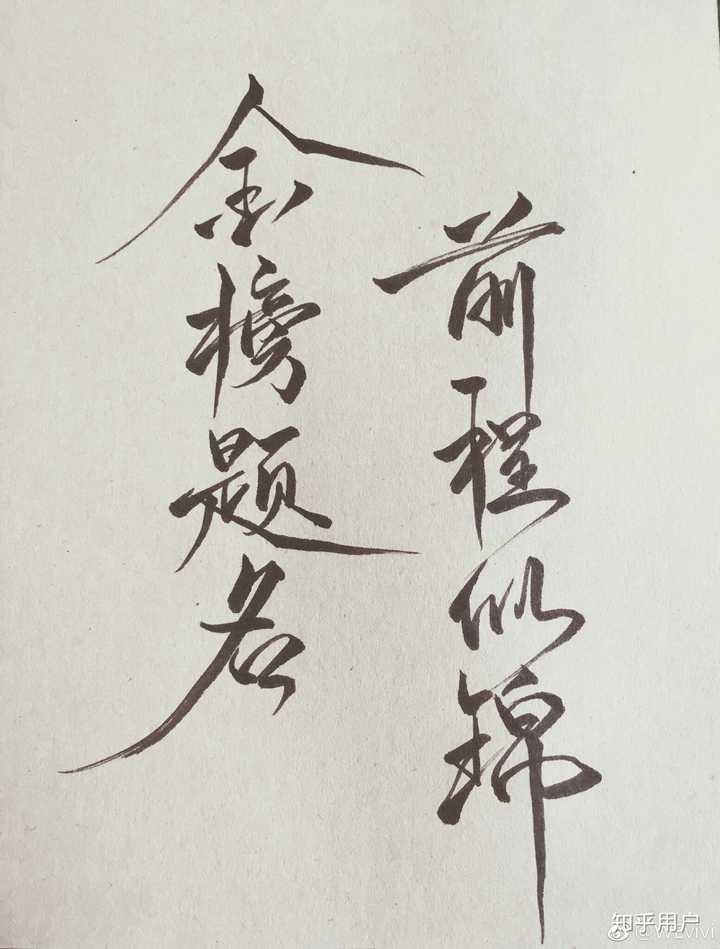 前程似锦
金榜题名
知乎用户